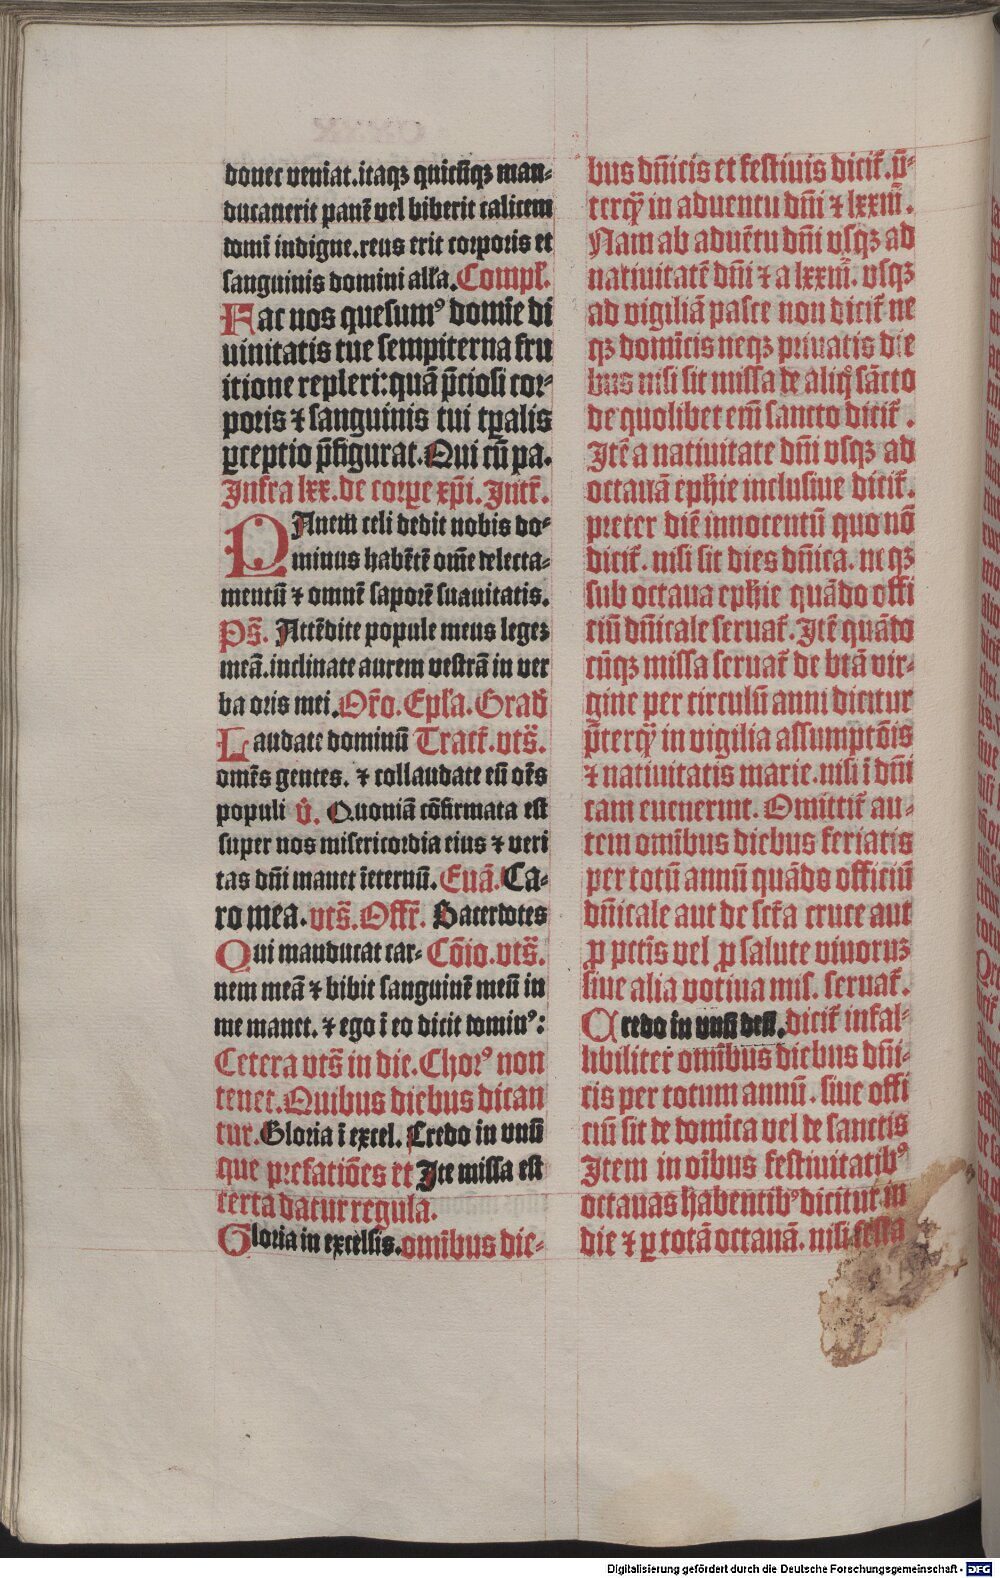 donec veniat. itaqꝫ quicūqꝫ man-
ducauerit panē vel biberit calicem
domī indigne. reus erit corporis et
sanguinis domini alľa. Compľ.
Fac nos quesumꝰ domīe di
uinitatis tue sempiterna fru
itione repleri: quā p̄ciosi cor-
poris ⁊ sanguinis tui tꝑalis
ꝑceptio p̄figurat. Qui cū pa.
Infra lxx. de corꝑe xp̄i. Introit̄.
PAnem celi dedit nobis do-
minus habētē om̄e delecta-
mentū ⁊ omnē saporē suauitatis.
Ps̄. Attēdite popule meus legeꝫ
meā. inclinate aurem vestrā in ver
ba oris mei. Or̄o. Epľa. Grad̄
Laudate dominū Tract̄. vts̄.
omēs gentes. ⁊ collaudate eū oēs
populi v̄. Quoniā cōfirmata est
super nos misericordia eius ⁊ veri
tas dn̄i manet īeternū. Euā. Ca-
ro mea. vts̄. Offr̄. Sacerdotes
Qui manducat car- Cōio. vts̄.
nem meā ⁊ bibit sanguinē meū in
me manet. ⁊ ego ī eo dicit dominꝰ:
Cetera vts̄ in die. Chorꝰ non
tenet. Quibus diebus dican
tur. Gloria ī excel. Credo in vnū
que prefatiōes et Ite missa est
certa datur regula.
Gloria in excelsis. omībus die-
bus dn̄icis et festiuis dicit̄. p̄-
terqȝ in aduentu dn̄i ⁊ lxxiii̅.
Nam ab aduētu dn̄i vsqꝫ ad
natiuitatē dn̄i ⁊ a lxxiii̅. vsqꝫ
ad vigiliā pasce non dicit̄ ne
qꝫ domīcis neqꝫ priuatis die
bus nisi sit missa de aliqº sācto
de quolibet em̄ sancto dicit̄.
Itē a natiuitate dn̄i vsqꝫ ad
octauā ephie inclusiue dicit̄.
preter diē innocentū quo nō
dicit̄. nisi sit dies dn̄ica. neqꝫ
sub octaua ephie quādo offi
ciū dn̄icale seruat̄. Itē quādo
cūqꝫ missa seruat̄ de btā vir-
gine per circulū anni dicitur
p̄terqȝ in vigilia assumptōis
⁊ natiuitatis marie. nisi ī dn̄i
cam euenerint. Omittit̄ au-
tem omībus diebus feriatis
per totū annū quādo officiū
dn̄icale aut de sct̄a cruce aut
ꝓ pctīs vel ꝓ salute viuoruꝫ
siue alia votiua mis. seruat̄.
Credo in vnū deū. dicit̄ infal-
libiliter omībus diebus dn̄i-
cis per totum annū. siue offi
ciū sit de domīca vel de sanctis
Item in oībus festiuitatibꝰ
octauas habentibꝰ dicitur in
die ⁊ ꝑ totā octauā. nisi festa
Digitalisierung gefördert durch die Deutsche Forschungsgemeinschaft - DFG